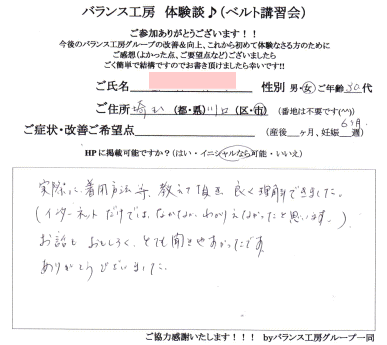 バランス工房 体験談♪(ベルト講習会)
ご参加ありがとうございます!!
今後のバランス工房グループの改善&向上、これから初めて体験なさる方のために
ご感想(よかった点、ご要望点など)ございましたら
ごく簡単で結構ですのでお書き頂けましたら幸いです!!
ご氏名 性別 男・女 ご年齢30代
ご住所 埼玉 (都・県) 川口 (区・市) (番地は不要です(^^))
ご症状・改善ご希望点 (産後 ヶ月、妊娠 6ヶ月 週)
HPに掲載可能ですか?(はい・イニシャルなら可能・いいえ)
実際に、着用方法等、教えて頂き 良く理解できました。
(インターネットだけでは、なかなか、わかりえなかったと思います。)
お話も おもしろく、とても聞きやすかったです。
ありがとうございました。
ご協力感謝いたします!!! byバランス工房グループ一同